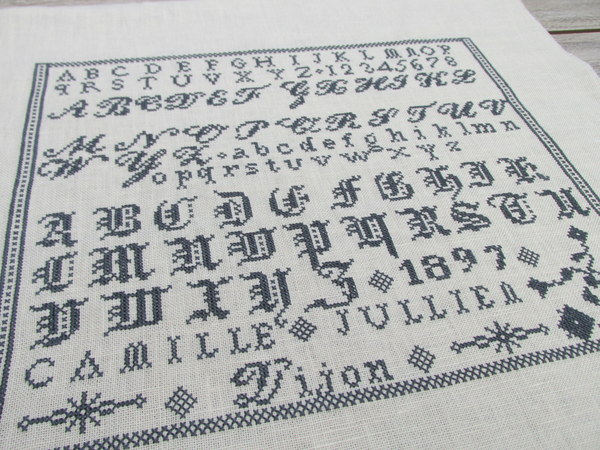 A B C D E F G H I J K L M N O P
Q R S T U V X Y Z 1 2 3 4 5 6 7 8
A B C D E F G H I K L
M N O P Q R S T U V
W Y Z a b c d e f g h i j k l m n
o p q r s t u v w x y z
A B C D E F G H I K
L M N O P Q R S T U
V W X Y Z 1897
CAMILLE JULLIEN
Dijon